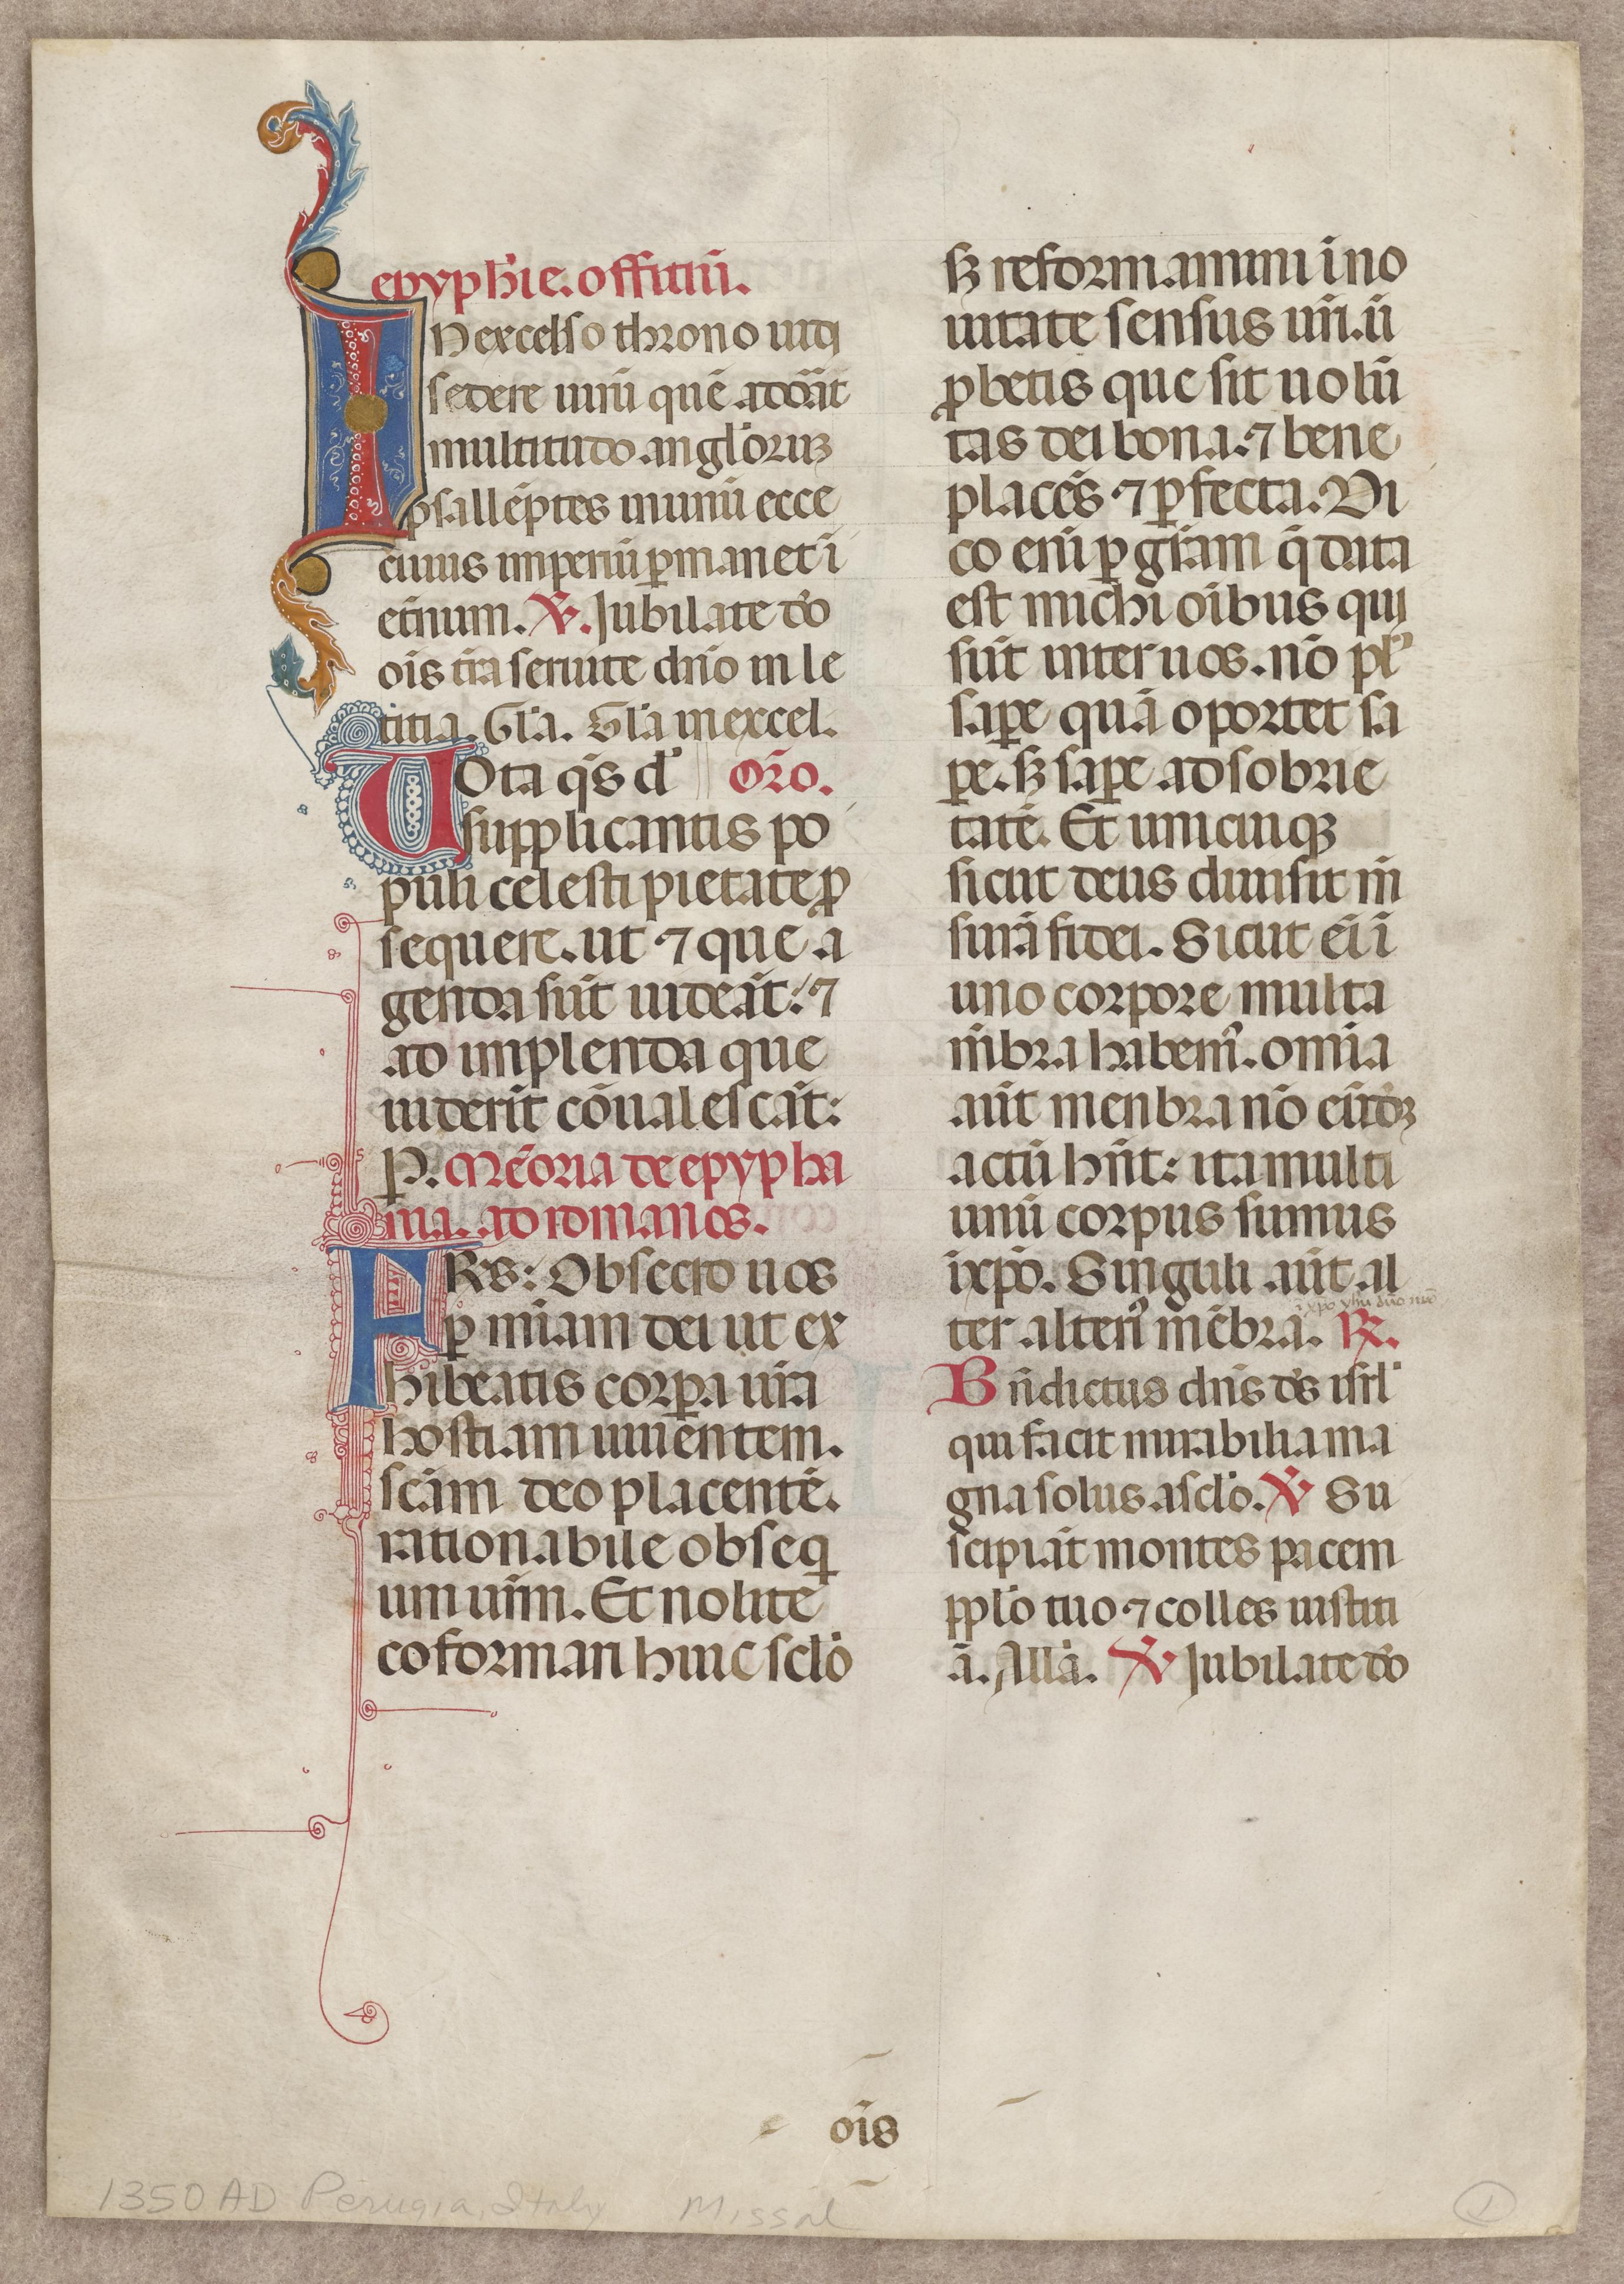 epyph̄ie. offitiū.
IN excelso throno uidi
sedere uirū quē adorāt
multitudo anglōrum
psallēptes in unū ecce
cuius imperiū ꝑmanet ī
etn̄um. ℣. Jubilate dō
oīs tr̄a seruite dn̄o in le
titia. Gl̄a. Gl̄a in excel.
Uota qs̄ d̄ Or̄o.
supplicantis po
puli celesti pietate ꝓ
sequere. ut ⁊ que a
genda sūt uideāt: ⁊
ad implenda que
uiderīt cōualescāt:
P. Mēoria de epypha
nia. ad romanos.
FRs: Obsecro uos
ꝑ mīam dei ut ex
hibeatis corꝑa ur̄a
hostiam uiuēntem.
scām deo placentē.
rationabile obseq
um ur̄m. Et nolite
coformari huic sclō
sꝫ reformamini ī no
uitate sensus ur̄i. ū
ꝓbetis que sit uolū
tas dei bona. ⁊ bene
placēs ⁊ ꝑfecta. Di
co enī ꝑ gr̄am q̄ data
est michi oībus qui
sūt inter uos. nō pl᾽
saꝑe quā oportet sa
ꝑe. sꝫ saꝑe ad sobrie
tatē. Et unicuiqꝫ
sicut deus diuisit m̄
surā fidei. Sicut eī ī
uno corpore multa
m̄bra habem᾽. omīa
aūt menbra nō eūdꝫ
actū hn̄t: ita multi
unū corpus sumus
ī xp̄o. Singuli aūt al
ī xp̄o yhū dn̄o nr̄o
ter alteri᾽ mēbra. ℟.
Bn̄dictus dn̄s ds̄ isrl̄
qui facit mirabilia ma
gna solus a sclō. ℣ Su
scipiāt montes pacem
pplō tuo ⁊ colles iustiti
ā. All̄a. ℣ Jubilate dō
oīs
1350 AD Perugia, Italy Missal
1